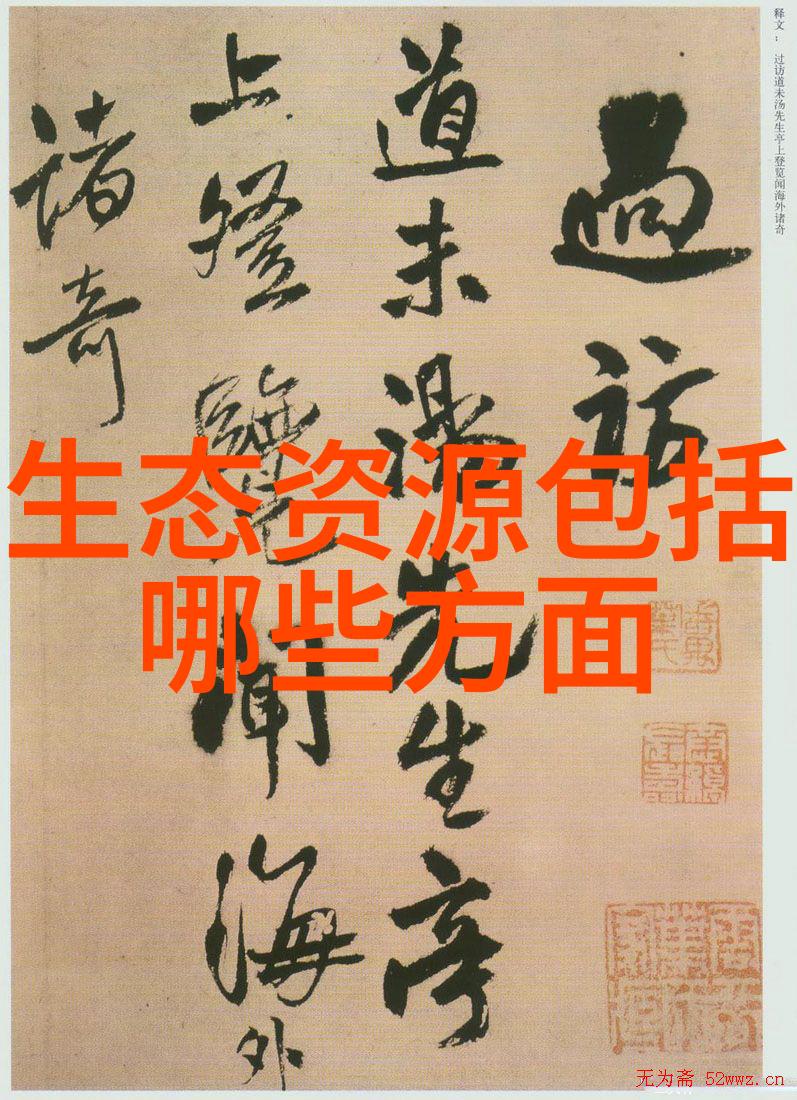 释文：过访道未汤先生亭上登览闻海外诸奇
過訪
道未湯先生亭
上登覽聞海外
诸奇
生态资源包括
哪些方面
无为斋 52wwz.cn